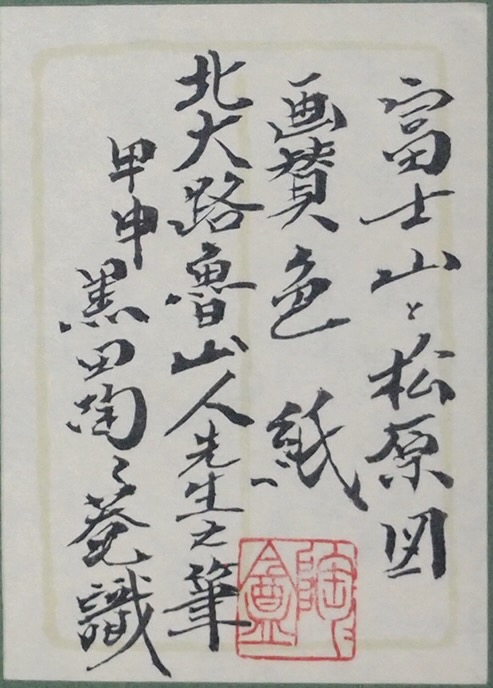 富士山と松原図
画賛色紙
北大路魯山人先生之筆
甲申 黒田陶々菴識